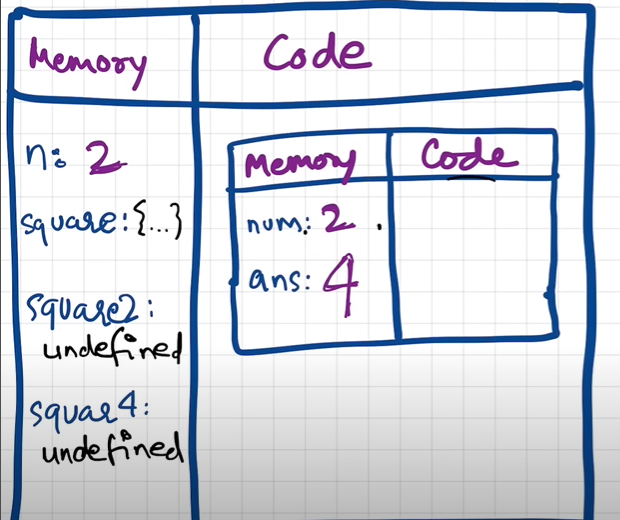 Memory
Code
n: 2
square: {...}
square2:
undefined
squar4:
undefined
Memory
Code
num: 2
ans: 4